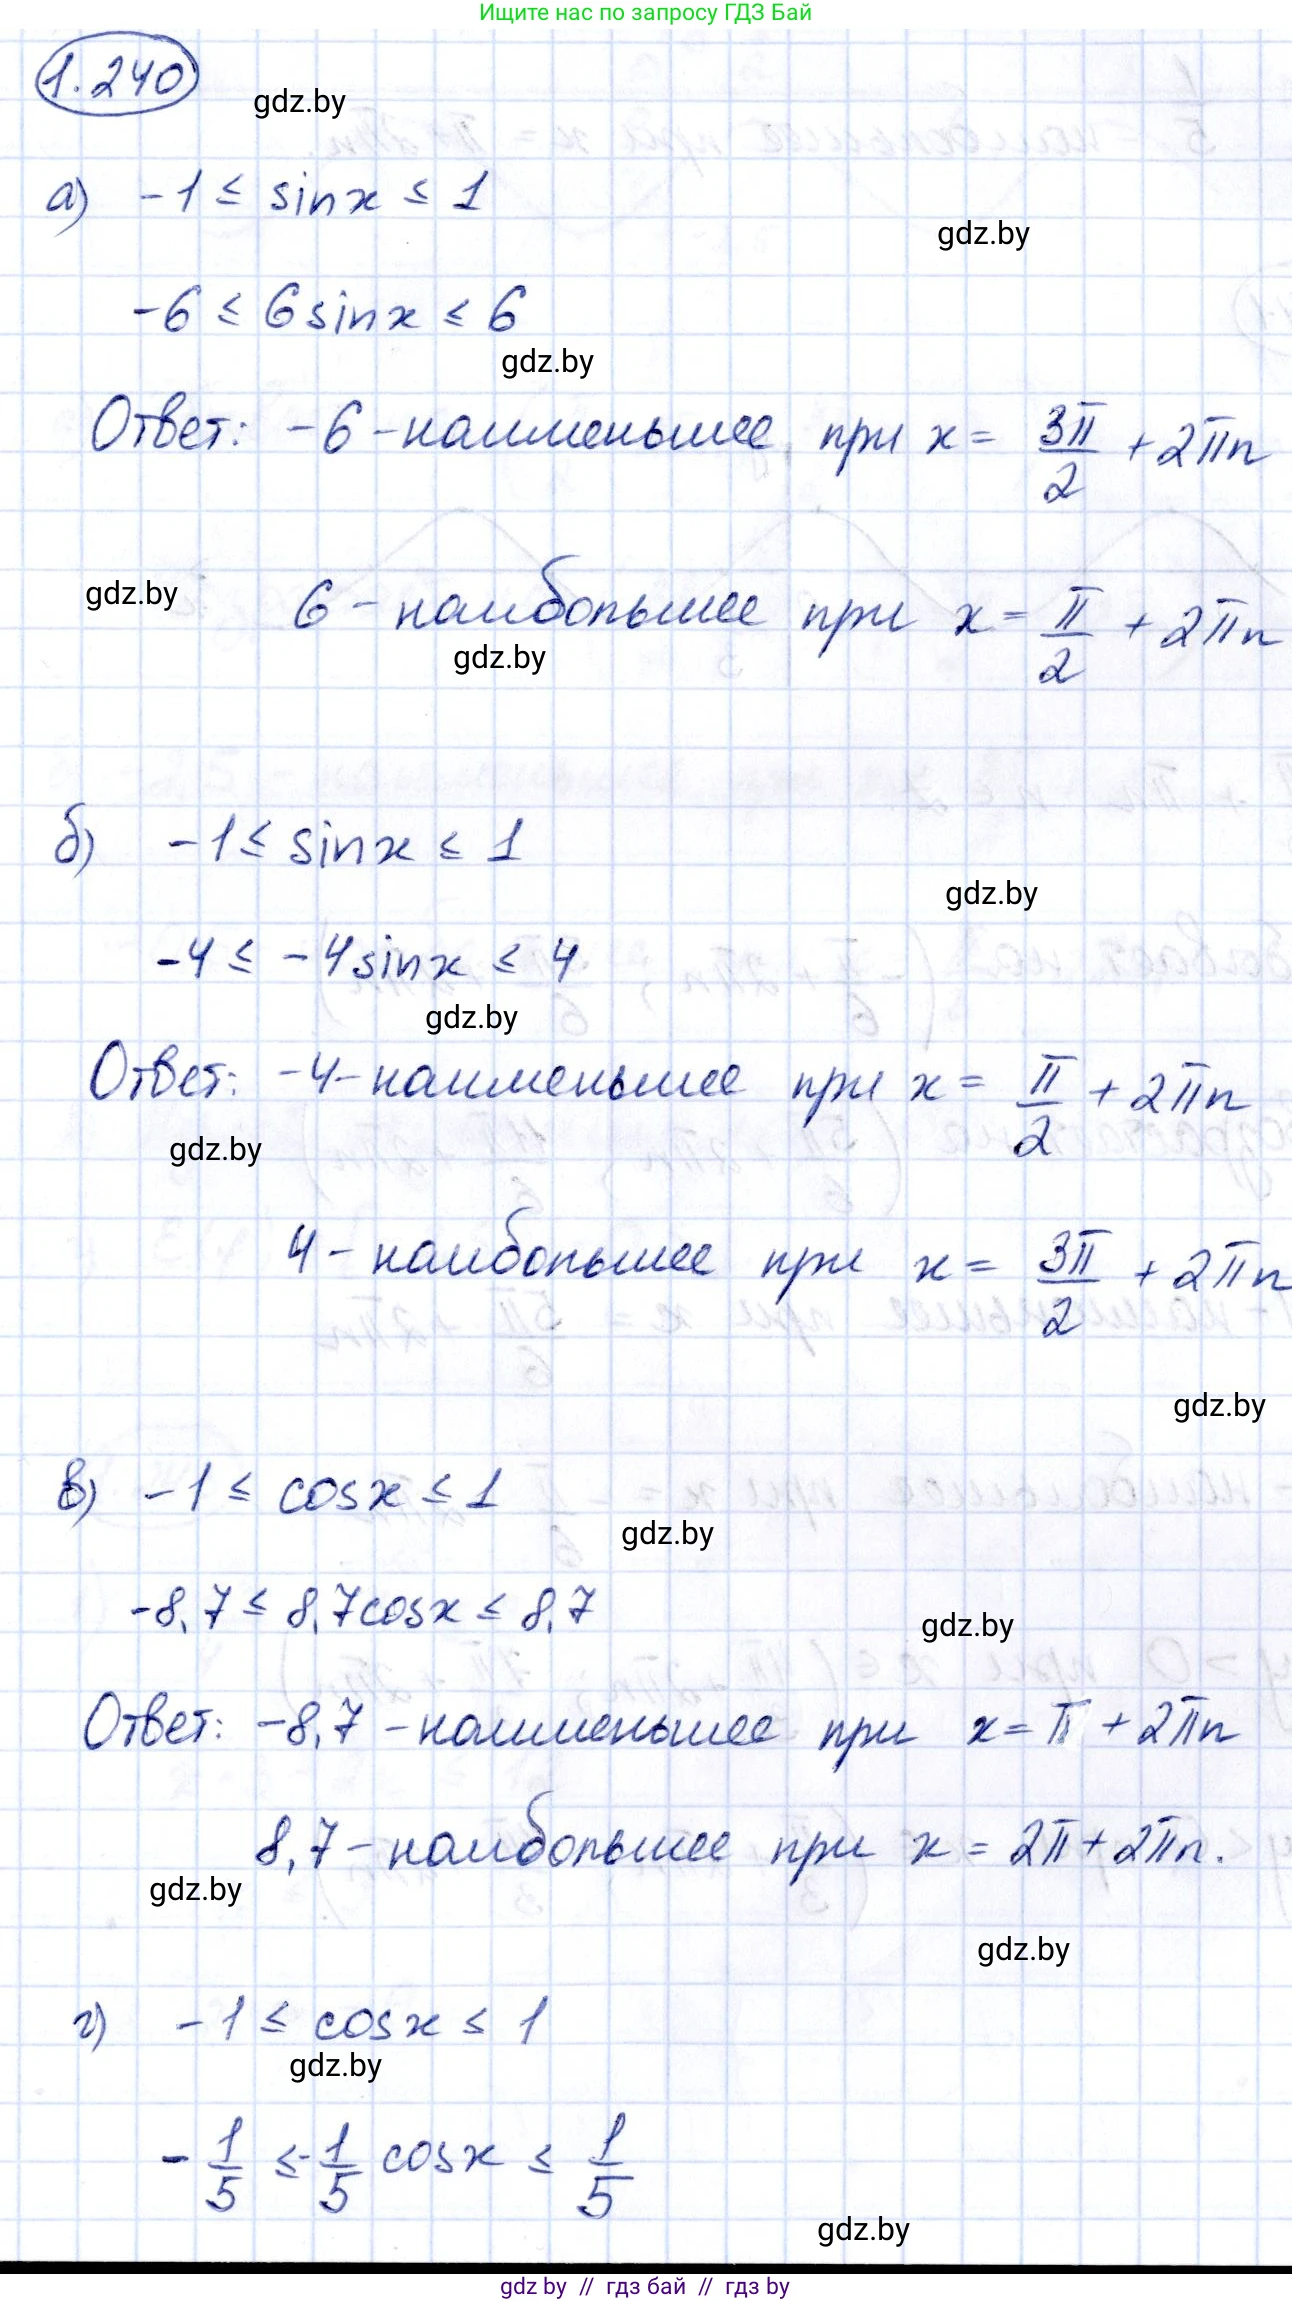 Ищите нас по запросу ГДЗ Бай
1.240
gdz.by
а) -1 ≤ sinx ≤ 1
gdz.by
-6 ≤ 6sinx ≤ 6
gdz.by
Ответ: -6 - наименьшее при x = 3π/2 + 2πn
gdz.by
6 - наибольшее при x = π/2 + 2πn
gdz.by
б) -1 ≤ sinx ≤ 1
gdz.by
-4 ≤ -4sinx ≤ 4
gdz.by
Ответ: -4 - наименьшее при x = π/2 + 2πn
gdz.by
4 - наибольшее при x = 3π/2 + 2πn
gdz.by
в) -1 ≤ cosx ≤ 1
gdz.by
-8,7 ≤ 8,7cosx ≤ 8,7
gdz.by
Ответ: -8,7 - наименьшее при x = π + 2πn
8,7 - наибольшее при x = 2π + 2πn.
gdz.by
gdz.by
г) -1 ≤ cosx ≤ 1
gdz.by
-1/5 ≤ -1/5 cosx ≤ 1/5
gdz.by
gdz by // гдз бай // гдз by